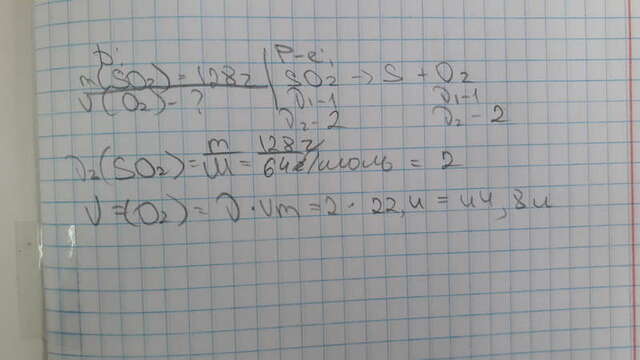 D: P-e:
m(SO2) = 128г SO2 → S + O2
V(O2) - ? ν1-1 ν1-1
ν2-2 ν2-2
ν2(SO2) = m/M = 128г/64г/моль = 2
V=(O2) = ν · Vm = 2 · 22,4 = 44,8л